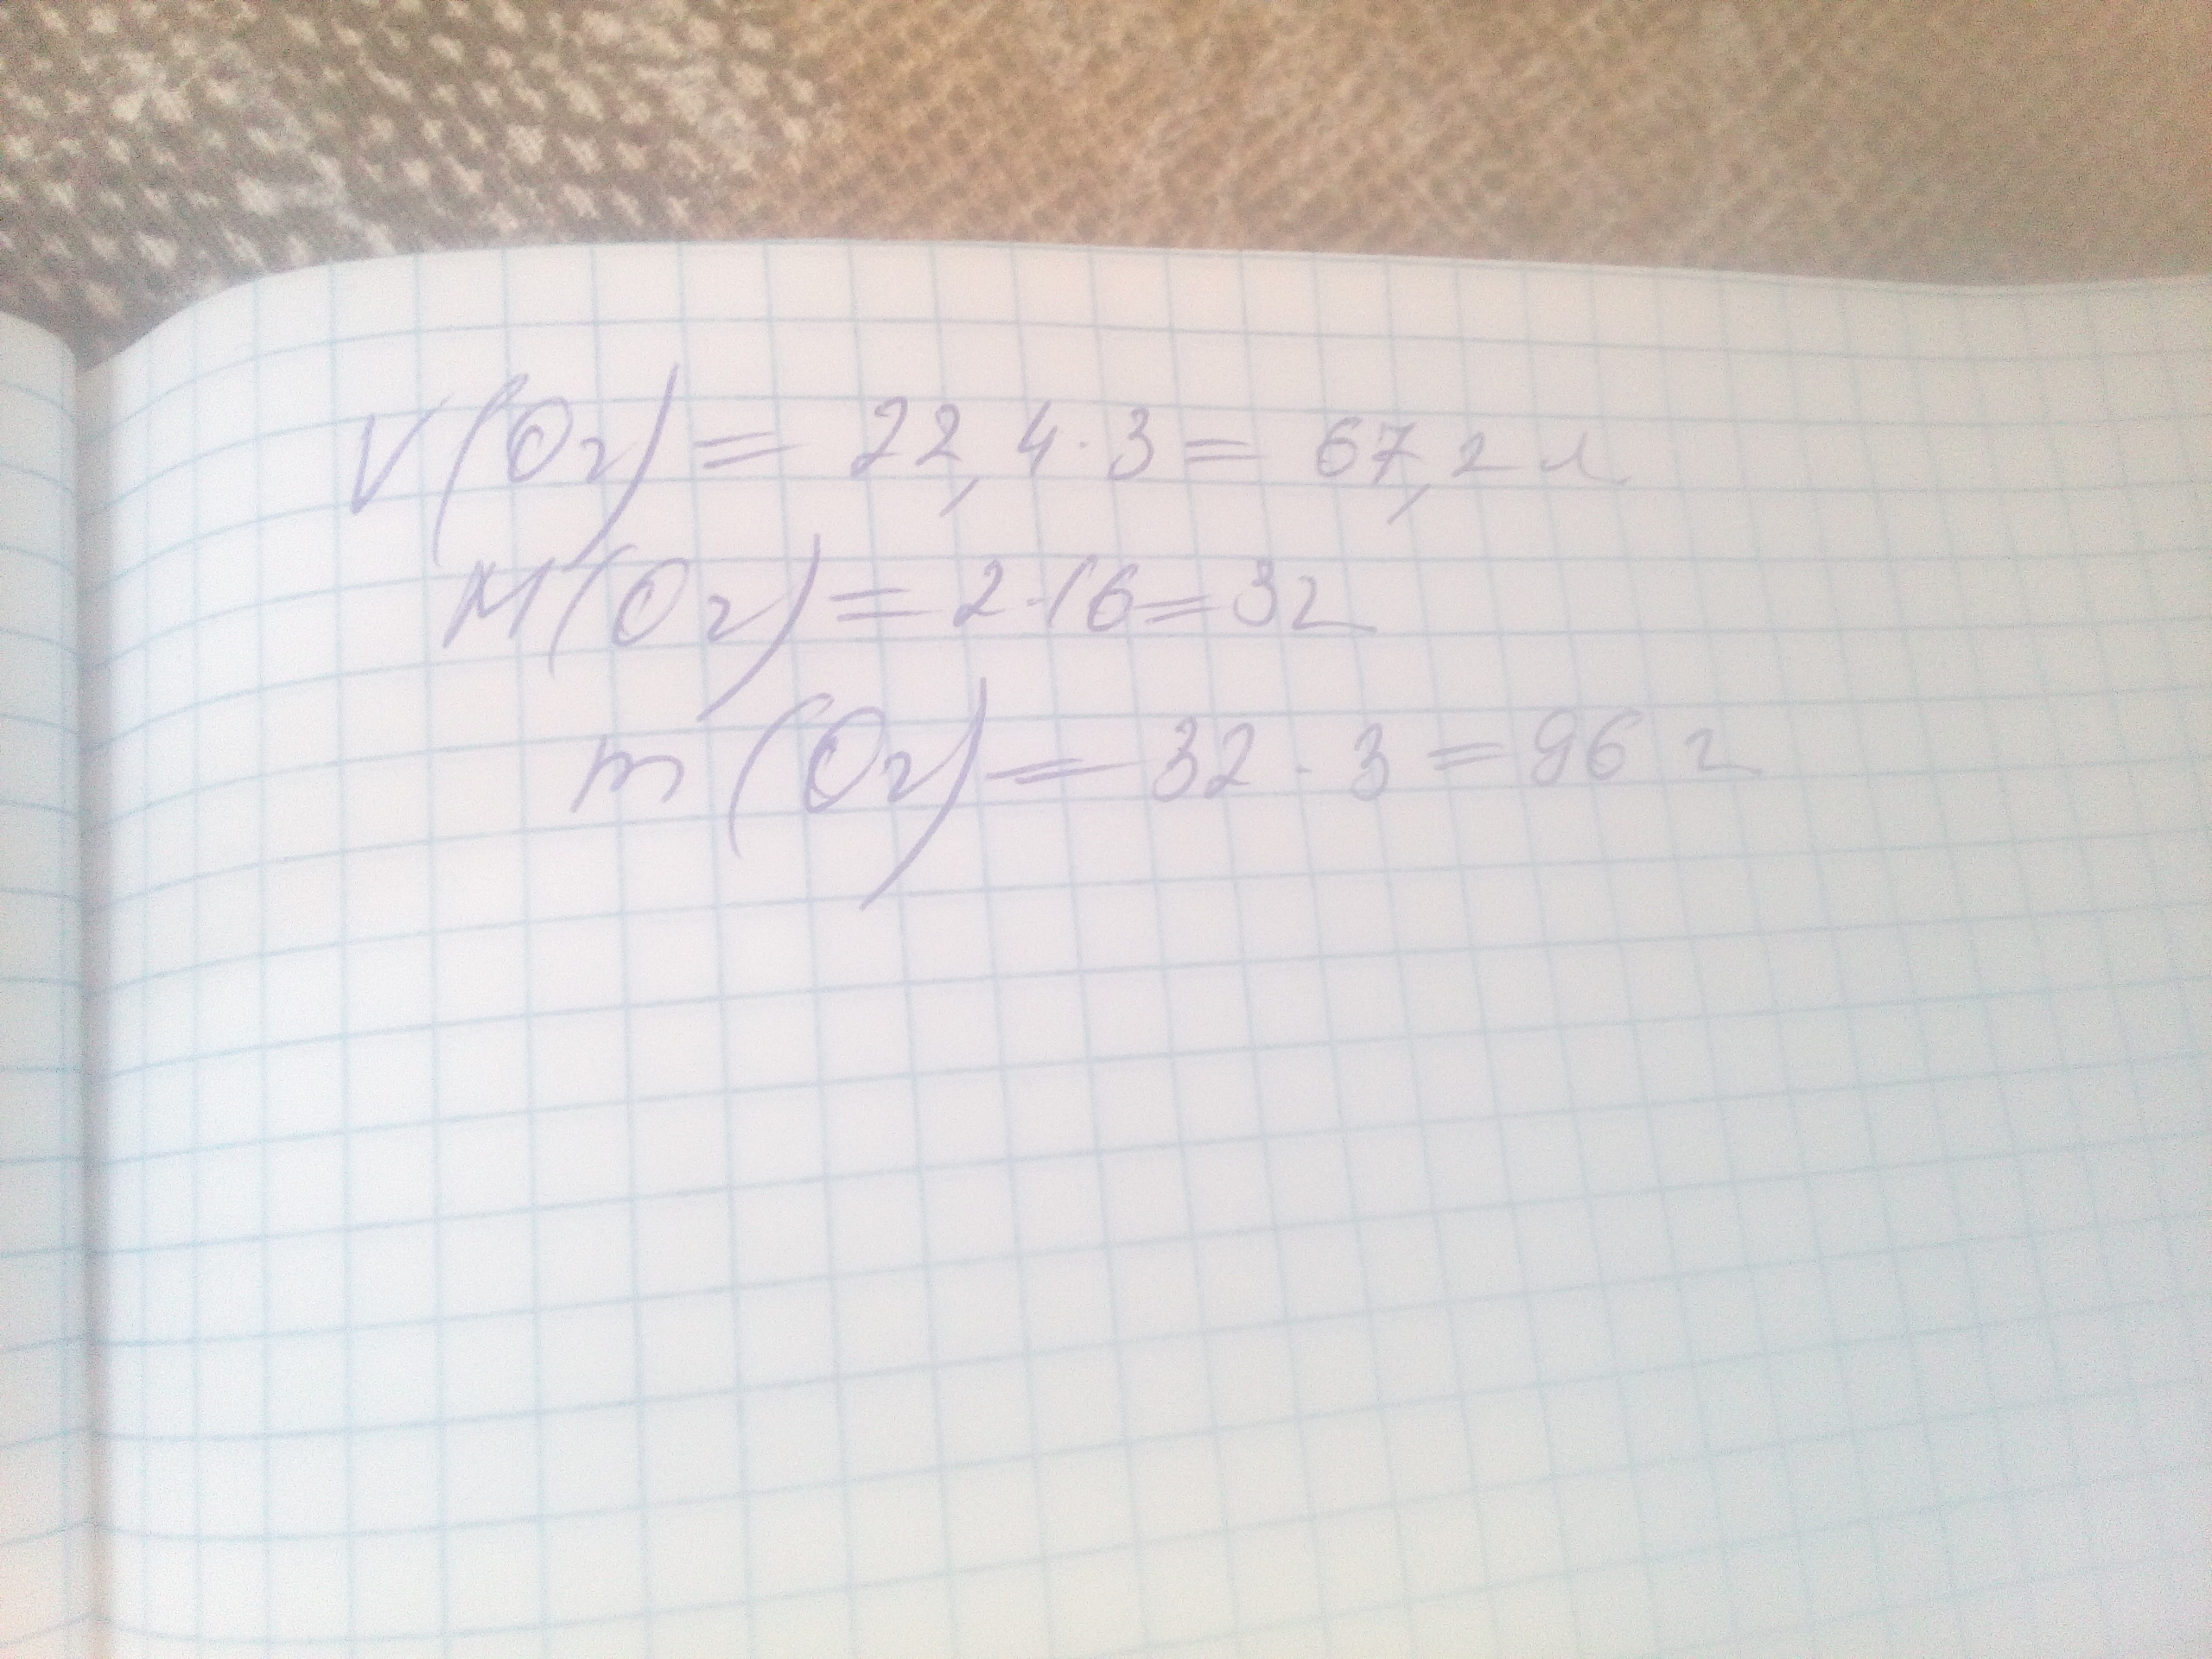 V(O2) = 22,4·3 = 67,2 л
M(O2) = 2·16 = 32
m(O2) = 32·3 = 96 г